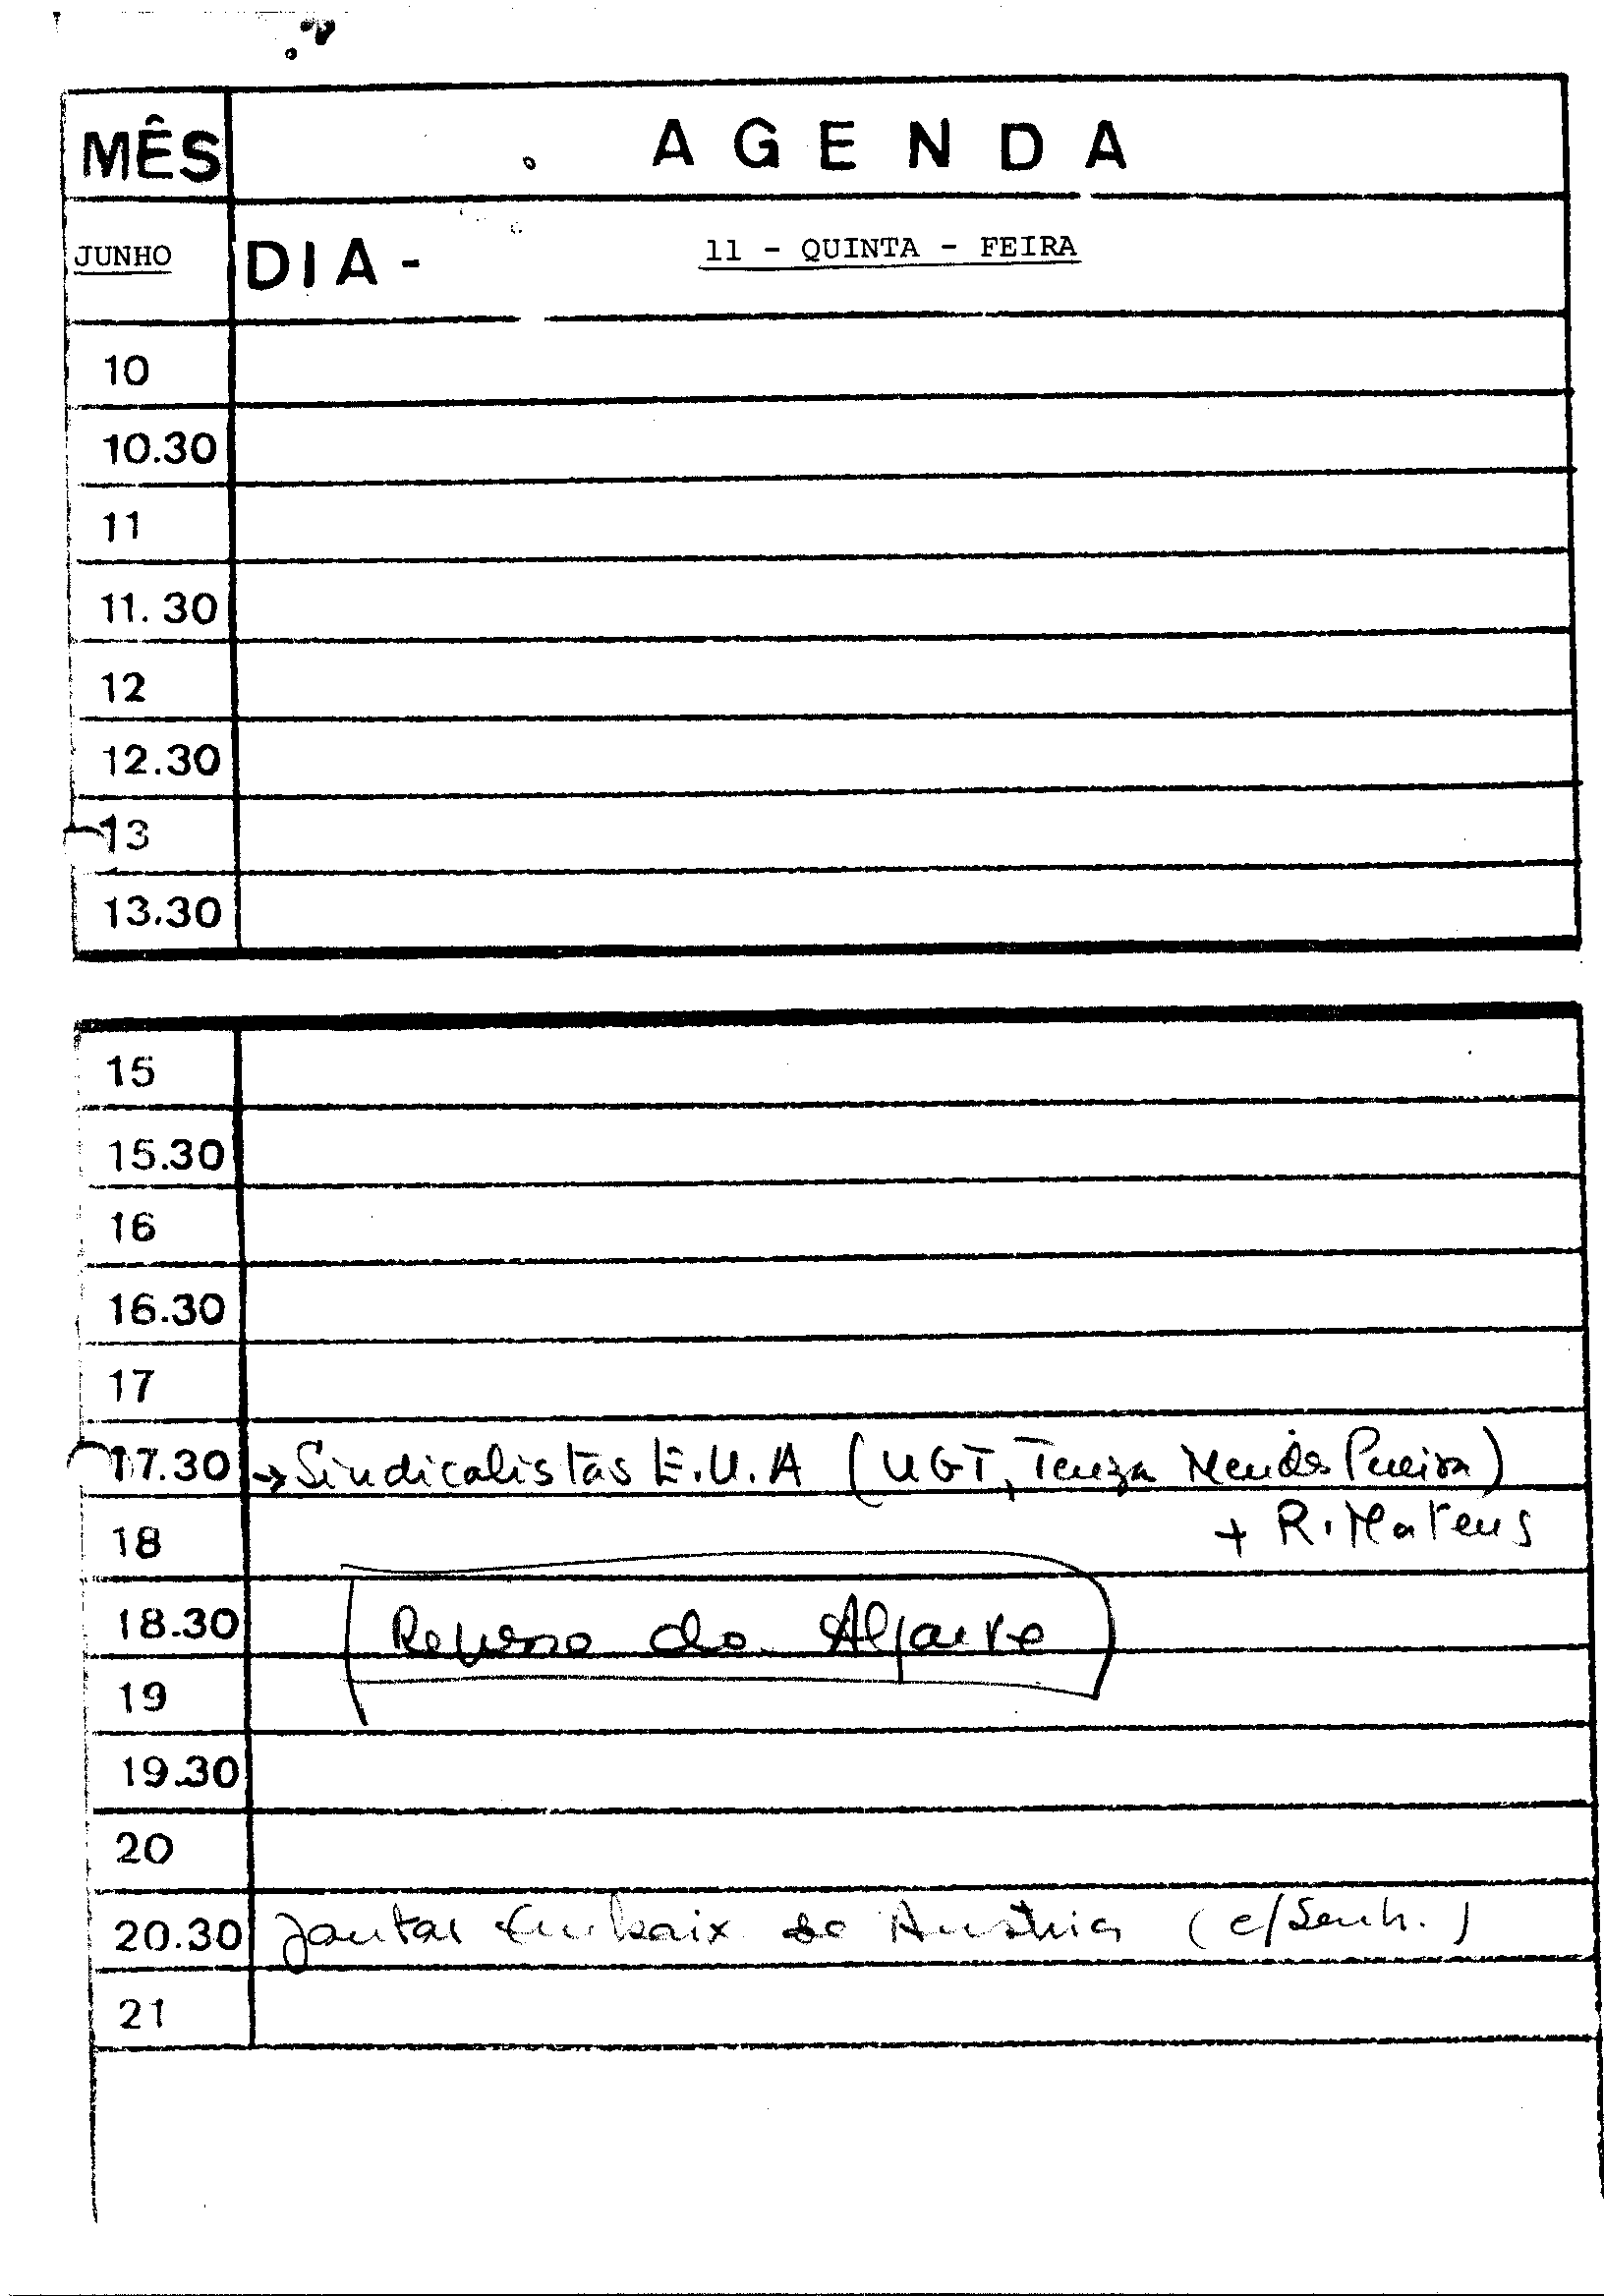 MÊS AGENDA
JUNHO DIA - 11 - QUINTA - FEIRA
10
10.30
11
11.30
12
12.30
13
13.30
15
15.30
16
16.30
17
17.30 → Sindicalistas E.U.A (UGT, Mendes Pereira)
18 + R. Mateus
18.30 Regresso do Algarve
19
19.30
20
20.30 Jantar Embaix de Austria (c/Senh.)
21